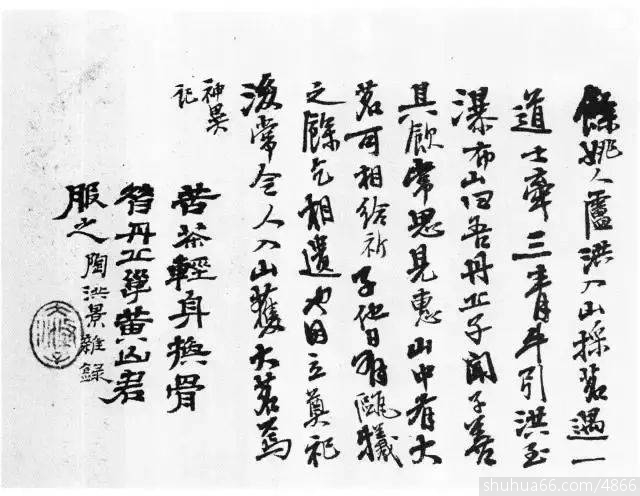 餘姚人盧洪入山採茗遇一
道士牽三青牛引洪至
瀑布山曰吾丹丘子聞子善
具飲常思見惠山中有大
茗可相給祈子他日有甌犧
之餘乞相遺也因立奠祀
後常令人入山獲大茗焉
神異
記
苦茶輕身換骨
昔丹丘黃山君
服之 陶洪景雜錄
shuhua66.com/4866